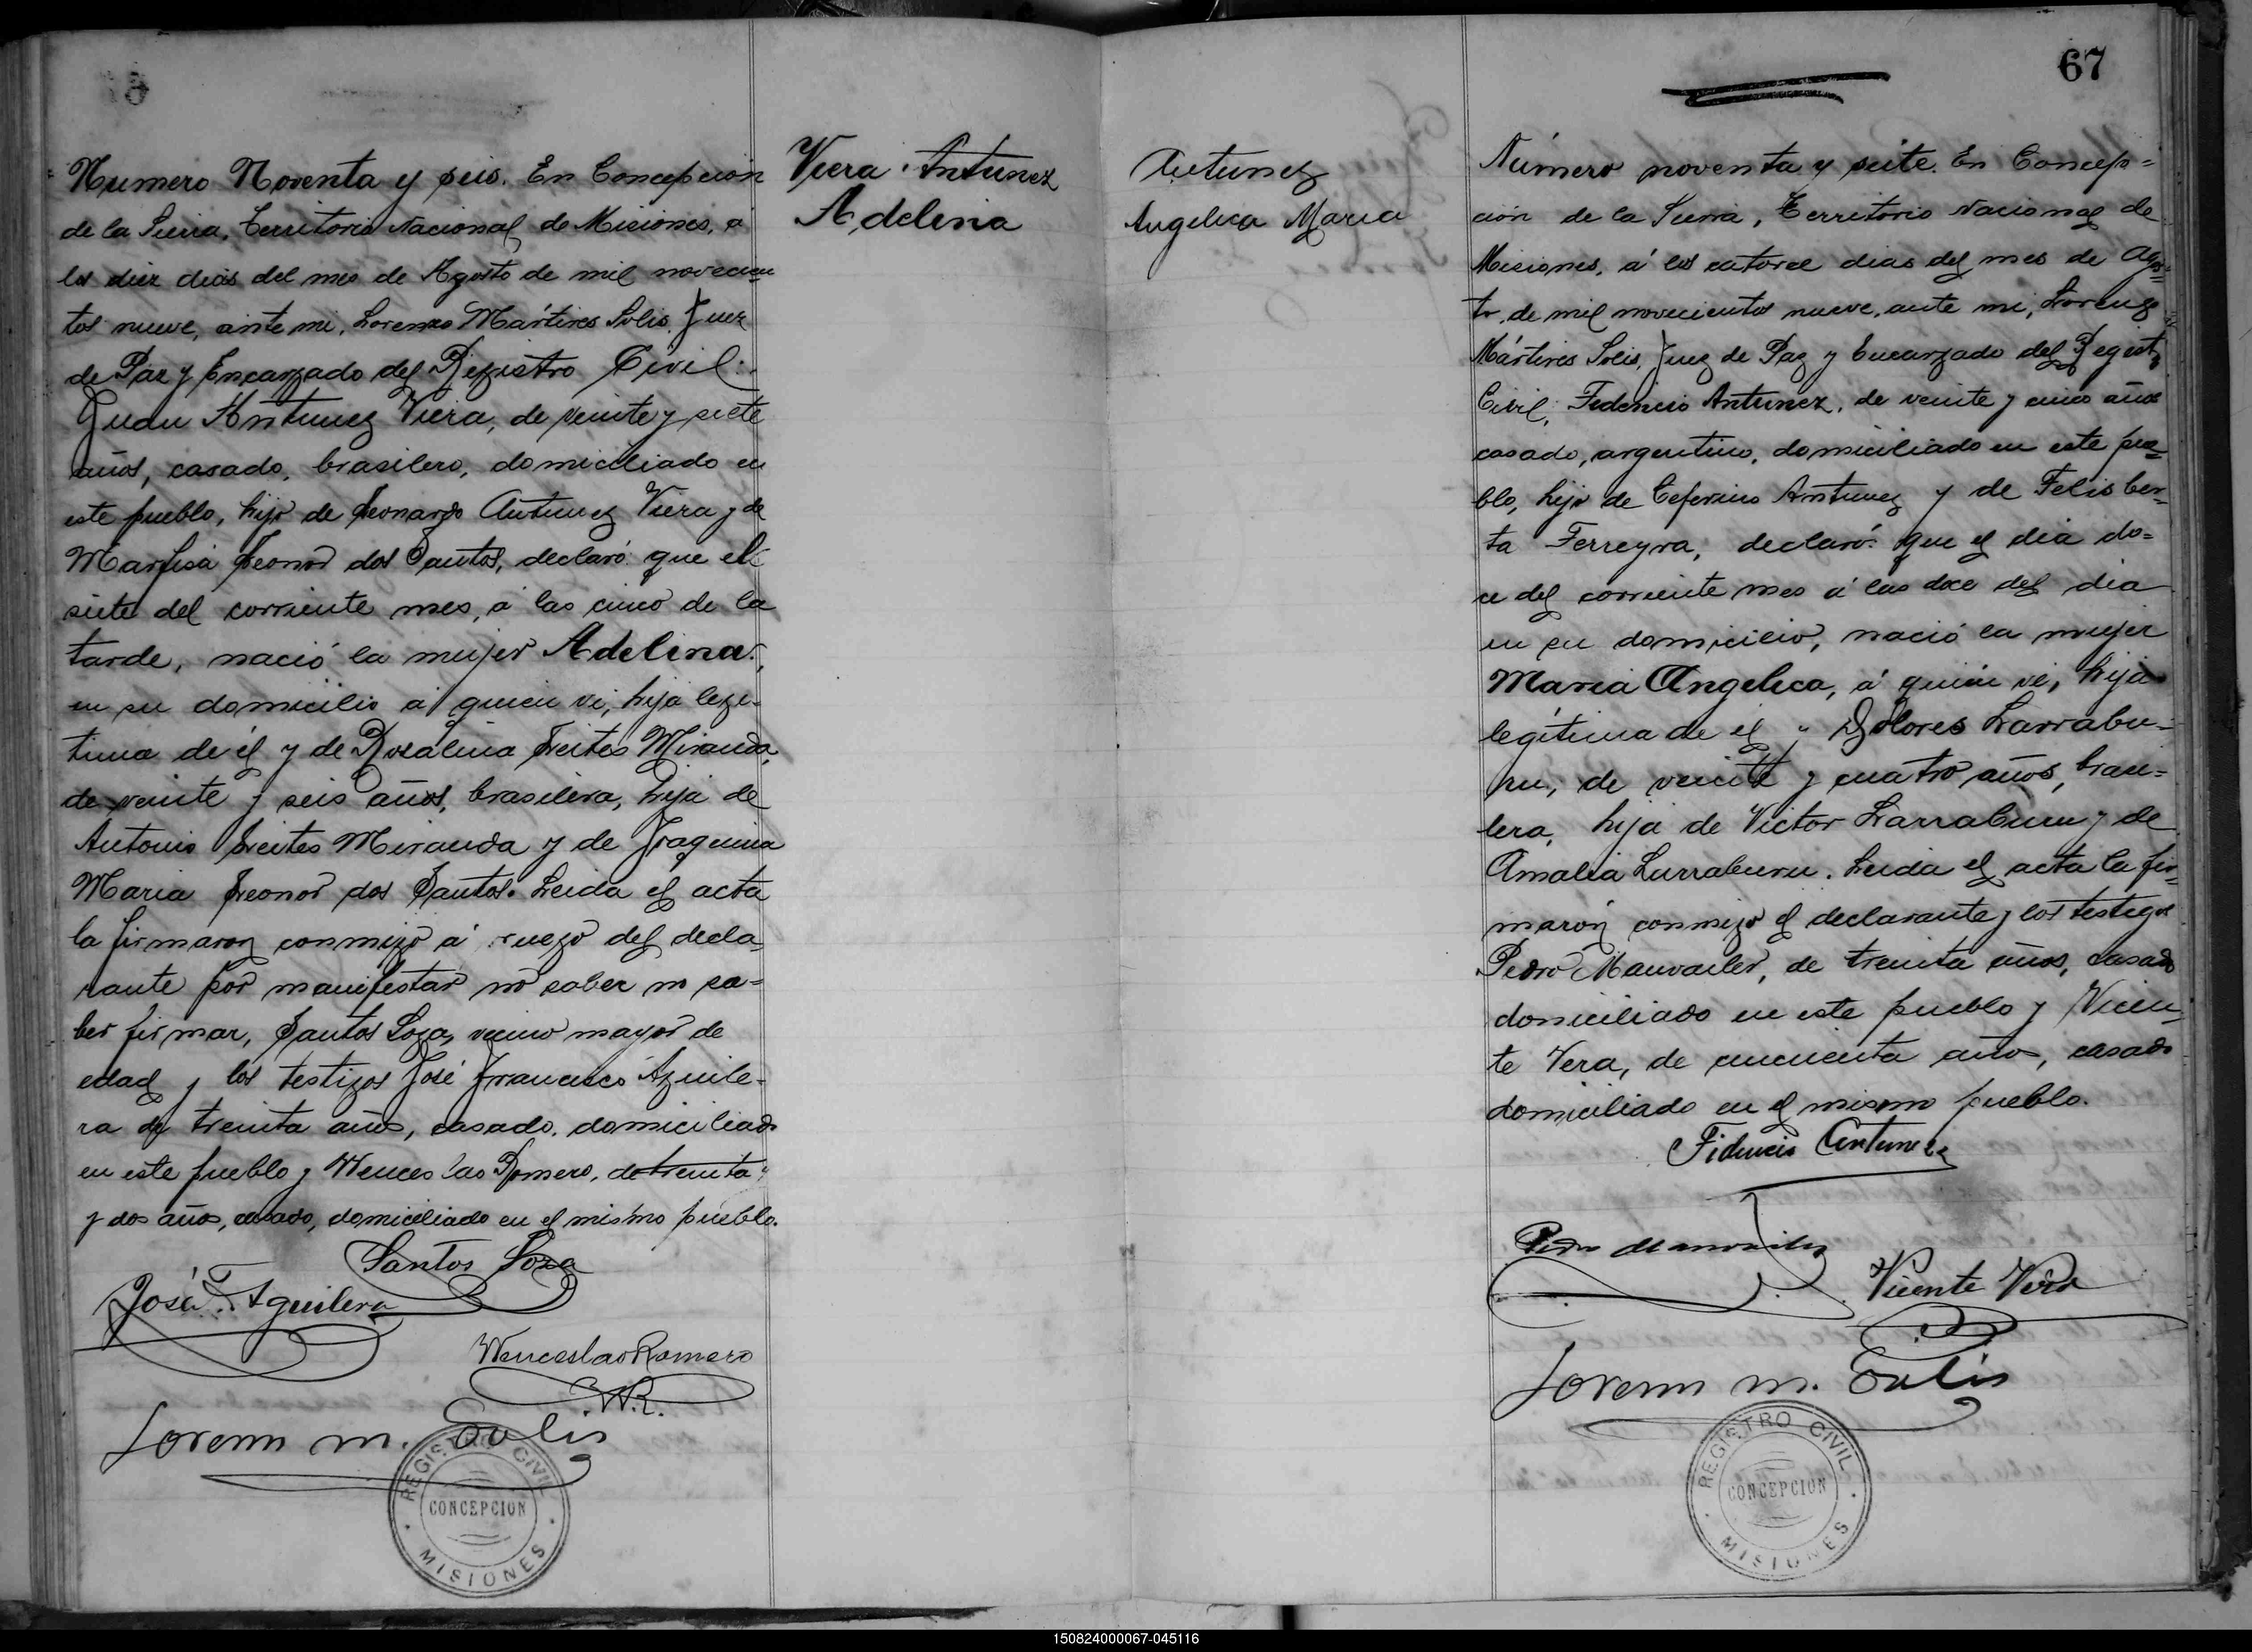 Numero Noventa y seis. En Concepcion
de la Sierra, Territorio Nacional de Misiones, a
los diez dias del mes de Agosto de mil novecien
tos nueve, ante mi, Lorenzo Mártires Solis, Juez
de Paz y Encargado del Registro Civil:
Juan Antunez Viera, de veinte y siete
años, casado, brasilero, domiciliado en
este pueblo, hijo de Leonardo Antunez Viera y de
Marfisa Leonor dos Santos, declaró: que el
siete del corriente mes, á las cinco de la
tarde, nació la mujer Adelina.,
en su domicilio á quien vi, hija legi-
tima de él y de Rosalina Freites Miranda,
de veinte y seis años, brasilera, hija de
Antonio Freites Miranda y de Joaquina
Maria Leonor dos Santos. Leida el acta
la firmaron conmigo á ruego del decla-
rante por manifestar no saber no sa-
ber firmar, Santos Soza, vecino mayor de
edad y los testigos José Francisco Aguile-
ra de treinta años, casado, domiciliado
en este pueblo y Wenceslao Romero, de treinta
y dos años, casado, domiciliado en el mismo pueblo.
Santos Soza
José F. Aguilera
Wenceslao Romero
W.R.
Lorenzo M. Solis
REGISTRO CIVIL
CONCEPCION
MISIONES
Viera Antunez
Adelina
Antunez
Angelica Maria
67
Número noventa y siete. En Concep=
ción de la Sierra, Territorio Nacional de
Misiones, á los catorce dias del mes de Agos=
to, de mil novecientos nueve, ante mi, Lorenzo
Mártires Solis, Juez de Paz y Encargado del Registro
Civil; Fedencio Antunez, de veinte y cinco años
casado, argentino, domiciliado en este pue=
blo, hijo de Ceferino Antunez y de Felisber-
ta Ferreyra, declaró: que el dia do=
ce del corriente mes á las doce del dia
en su domicilio, nació la mujer
Maria Angelica, á quien vi, hija
legítima de él y Dolores Larrabu-
ru, de veinte y cuatro años, brasi=
lera, hija de Victor Larraburu y de
Amalia Lurraburu. Leida el acta la fir=
marón conmigo el declarante y los testigos
Pedro Manvailer, de treinta años, casado
domiciliado en este pueblo y Vicen-
te Vera, de cincuenta años, casado
domiciliado en el mismo pueblo.
Fidencio Antunez
Pedro Manvailer
Vicente Vera
Lorenzo M. Solis
REGISTRO CIVIL
CONCEPCION
MISIONES
150824000067-045116